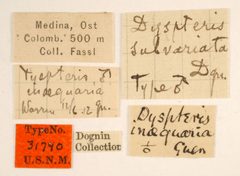 Medina, Ost
Colomb. 500 m
Coll. Fassl
Dyspteris
subvariata
Dgn.
Type ♂
Dyspteris, ♂
inaequaria
Warren
TypeNo.
31740
U.S.N.M.
Dognin
Collection
Dyspteris
inaequaria
♂ Guen